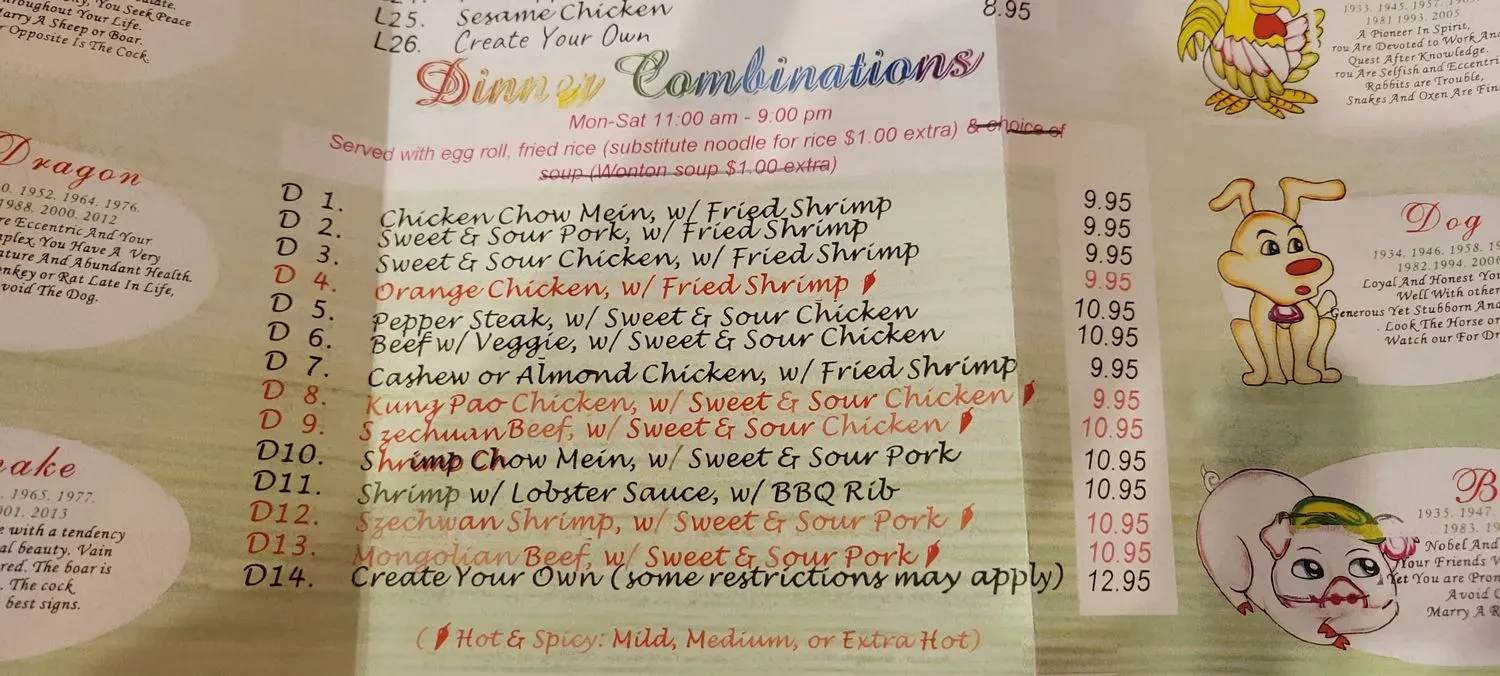 L25. Sesame Chicken 8.95
L26. Create Your Own
Dinner Combinations
Mon-Sat 11:00 am - 9:00 pm
Served with egg roll, fried rice (substitute noodle for rice $1.00 extra) & choice of
soup (Wonton soup $1.00 extra)
D 1. Chicken Chow Mein, w/ Fried Shrimp 9.95
D 2. Sweet & Sour Pork, w/ Fried Shrimp 9.95
D 3. Sweet & Sour Chicken, w/ Fried Shrimp 9.95
D 4. Orange Chicken, w/ Fried Shrimp 9.95
D 5. Pepper Steak, w/ Sweet & Sour Chicken 10.95
D 6. Beef w/ Veggie, w/ Sweet & Sour Chicken 10.95
D 7. Cashew or Almond Chicken, w/ Fried Shrimp 9.95
D 8. Kung Pao Chicken, w/ Sweet & Sour Chicken 9.95
D 9. Szechuan Beef, w/ Sweet & Sour Chicken 10.95
D10. Shrimp Chow Mein, w/ Sweet & Sour Pork 10.95
D11. Shrimp w/ Lobster Sauce, w/ BBQ Rib 10.95
D12. Szechwan Shrimp, w/ Sweet & Sour Pork 10.95
D13. Mongolian Beef, w/ Sweet & Sour Pork 10.95
D14. Create Your Own (some restrictions may apply) 12.95
( Hot & Spicy: Mild, Medium, or Extra Hot)
You Seek Peace
Throughout Your Life.
Marry A Sheep or Boar.
Opposite Is The Cock.
Dragon
1952. 1964. 1976.
1988. 2000. 2012
Eccentric And Your
You Have A Very
And Abundant Health.
or Rat Late In Life,
The Dog.
1965. 1977.
2013
with a tendency
beauty. Vain
The boar is
The cock
best signs.
1933. 1945. 1957.
1981 1993. 2005
A Pioneer In Spirit,
You Are Devoted to Work And
Quest After Knowledge.
You Are Selfish and Eccentric
Rabbits are Trouble,
Snakes And Oxen Are Fine
Dog
1934. 1946. 1958.
1982. 1994. 2006
Loyal And Honest You
Well With other
Generous Yet Stubborn And
. Look The Horse or
Watch our For
1935. 1947.
1983.
Nobel And
Your Friends
Yet You are
Avoid
Marry A